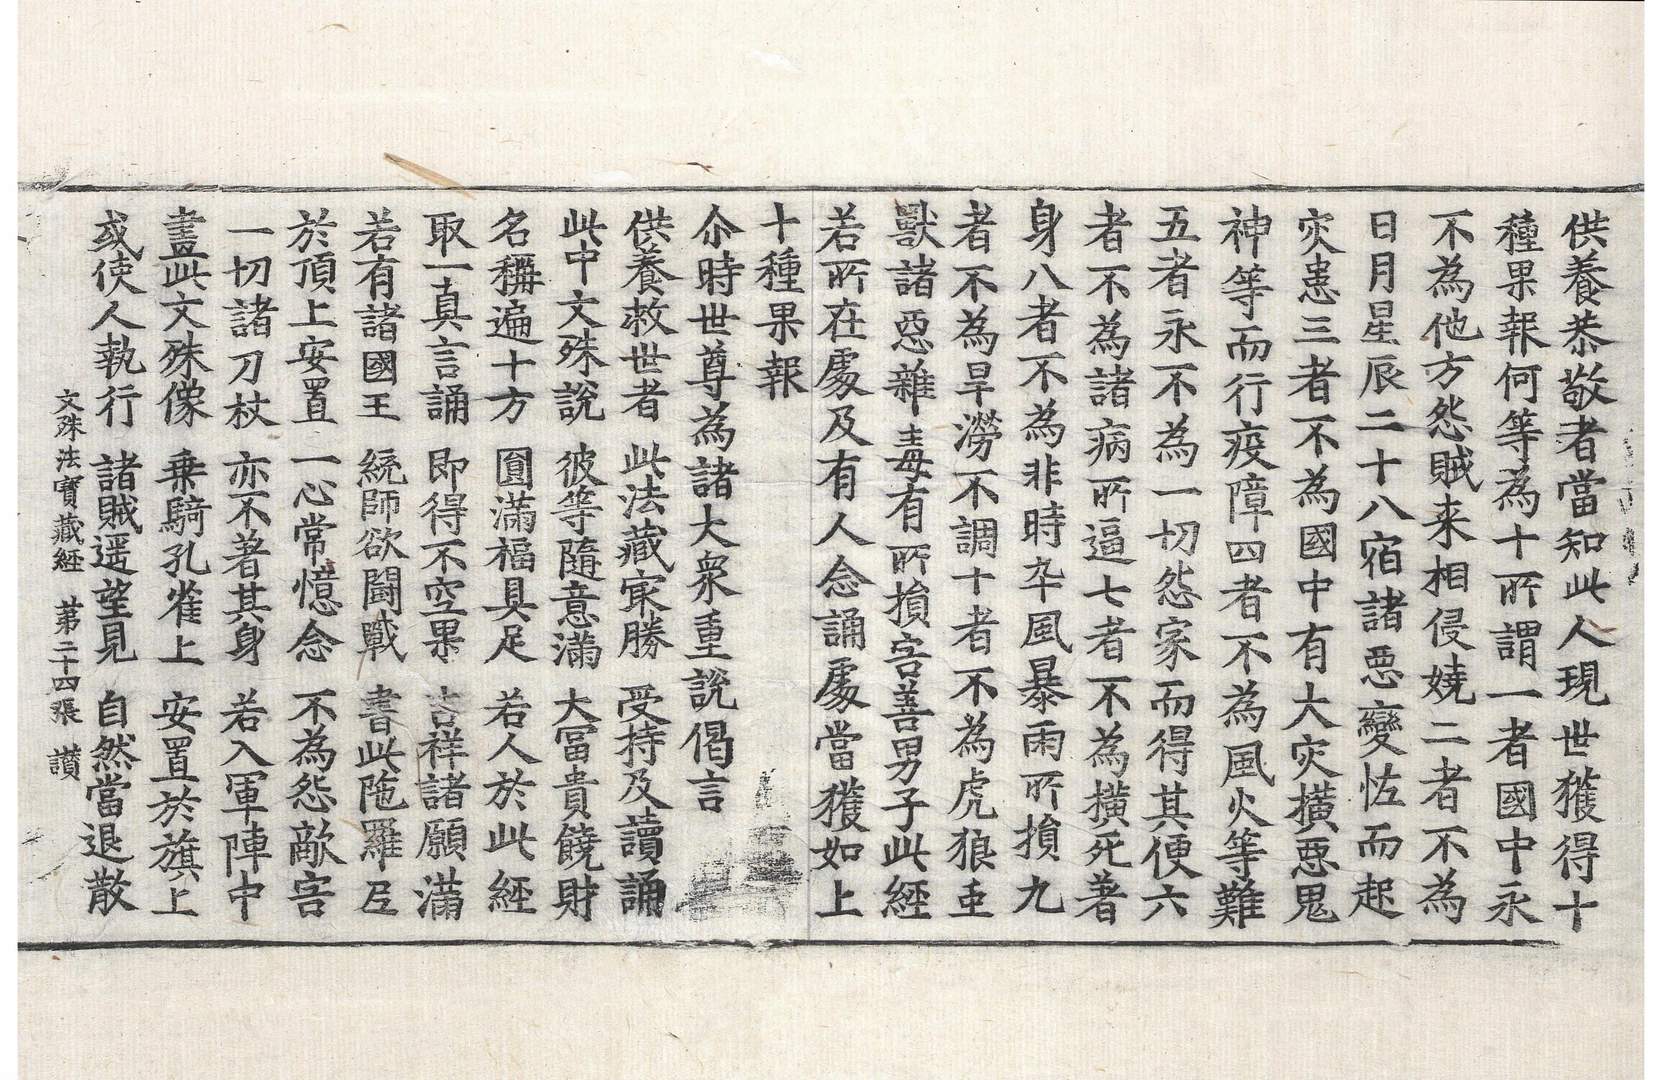 供養恭敬者當知此人現世獲得十
種果報何等為十所謂一者國中永
不為他方怨賊来相侵嬈二者不為
日月星辰二十八宿諸惡變恠而起
灾患三者不為國中有大灾撗惡鬼
神等而行疫障四者不為風火等難
五者永不為一切怨家而得其便六
者不為諸病所逼七者不為撗死著
身八者不為非時卒風暴雨所損九
者不為旱澇不調十者不為虎狼重
獸諸惡雜毒有所損害善男子此經
若所在處及有人念誦處當獲如上
十種果報
尒時世尊為諸大衆重說偈言
供養救世者 此法藏㝡勝 受持及讀誦
此中文殊說 彼等隨意滿 大冨貴饒財
名稱遍十方 圓滿福具足 若人於此經
取一真言誦 即得不空果 吉祥諸願滿
若有諸國王 統師欲鬪戰 書此陁羅尼
於頂上安置 一心常憶念 不為怨敵害
一切諸刀杖 亦不著其身 若入軍陣中
畫此文殊像 乗騎孔雀上 安置於旗上
或使人執行 諸賊遥望見 自然當退散
文殊法寳藏經 第二十四張 讃